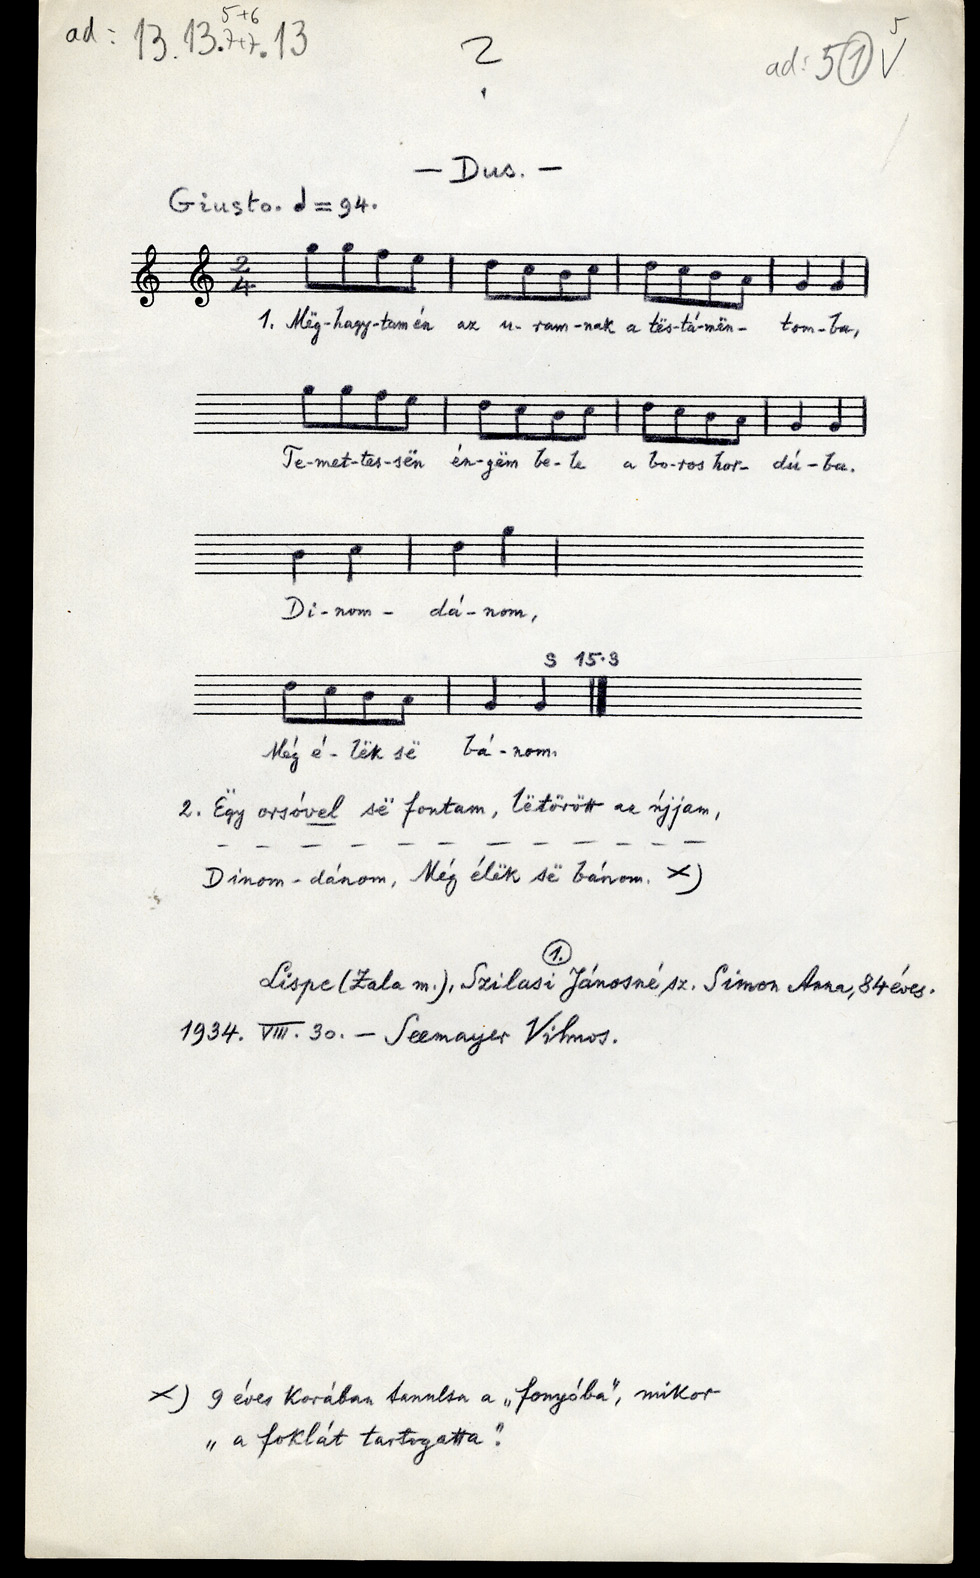 ad: 13. 13. 5+6 7+7. 13
2
ad: 5 (1) V 5
– Dus. –
Giusto. d = 94.
2/4
1. Mëg-hagy-tam én az u-ram-nak a tës-tá-mën- tom-ba,
Te-met-tes-sën én-gëm be-le a bo-ros hor- dú-ba.
Di-nom- dá-nom,
S 15.3
Még é-lëk së bá-nom.
2. Ëgy orsóvel së fontam, lëtörött az újjam,
– – – – – – – – – – – –
Dinom-dánom, Még élëk së bánom. x)
1.
Lispe (Zala m.), Szilasi Jánosné sz. Simon Anna, 84 éves.
1934. VIII. 30. – Seemayer Vilmos.
x) 9 éves korában tanulta a „fonyóba", mikor
„a foklát tartogatta".